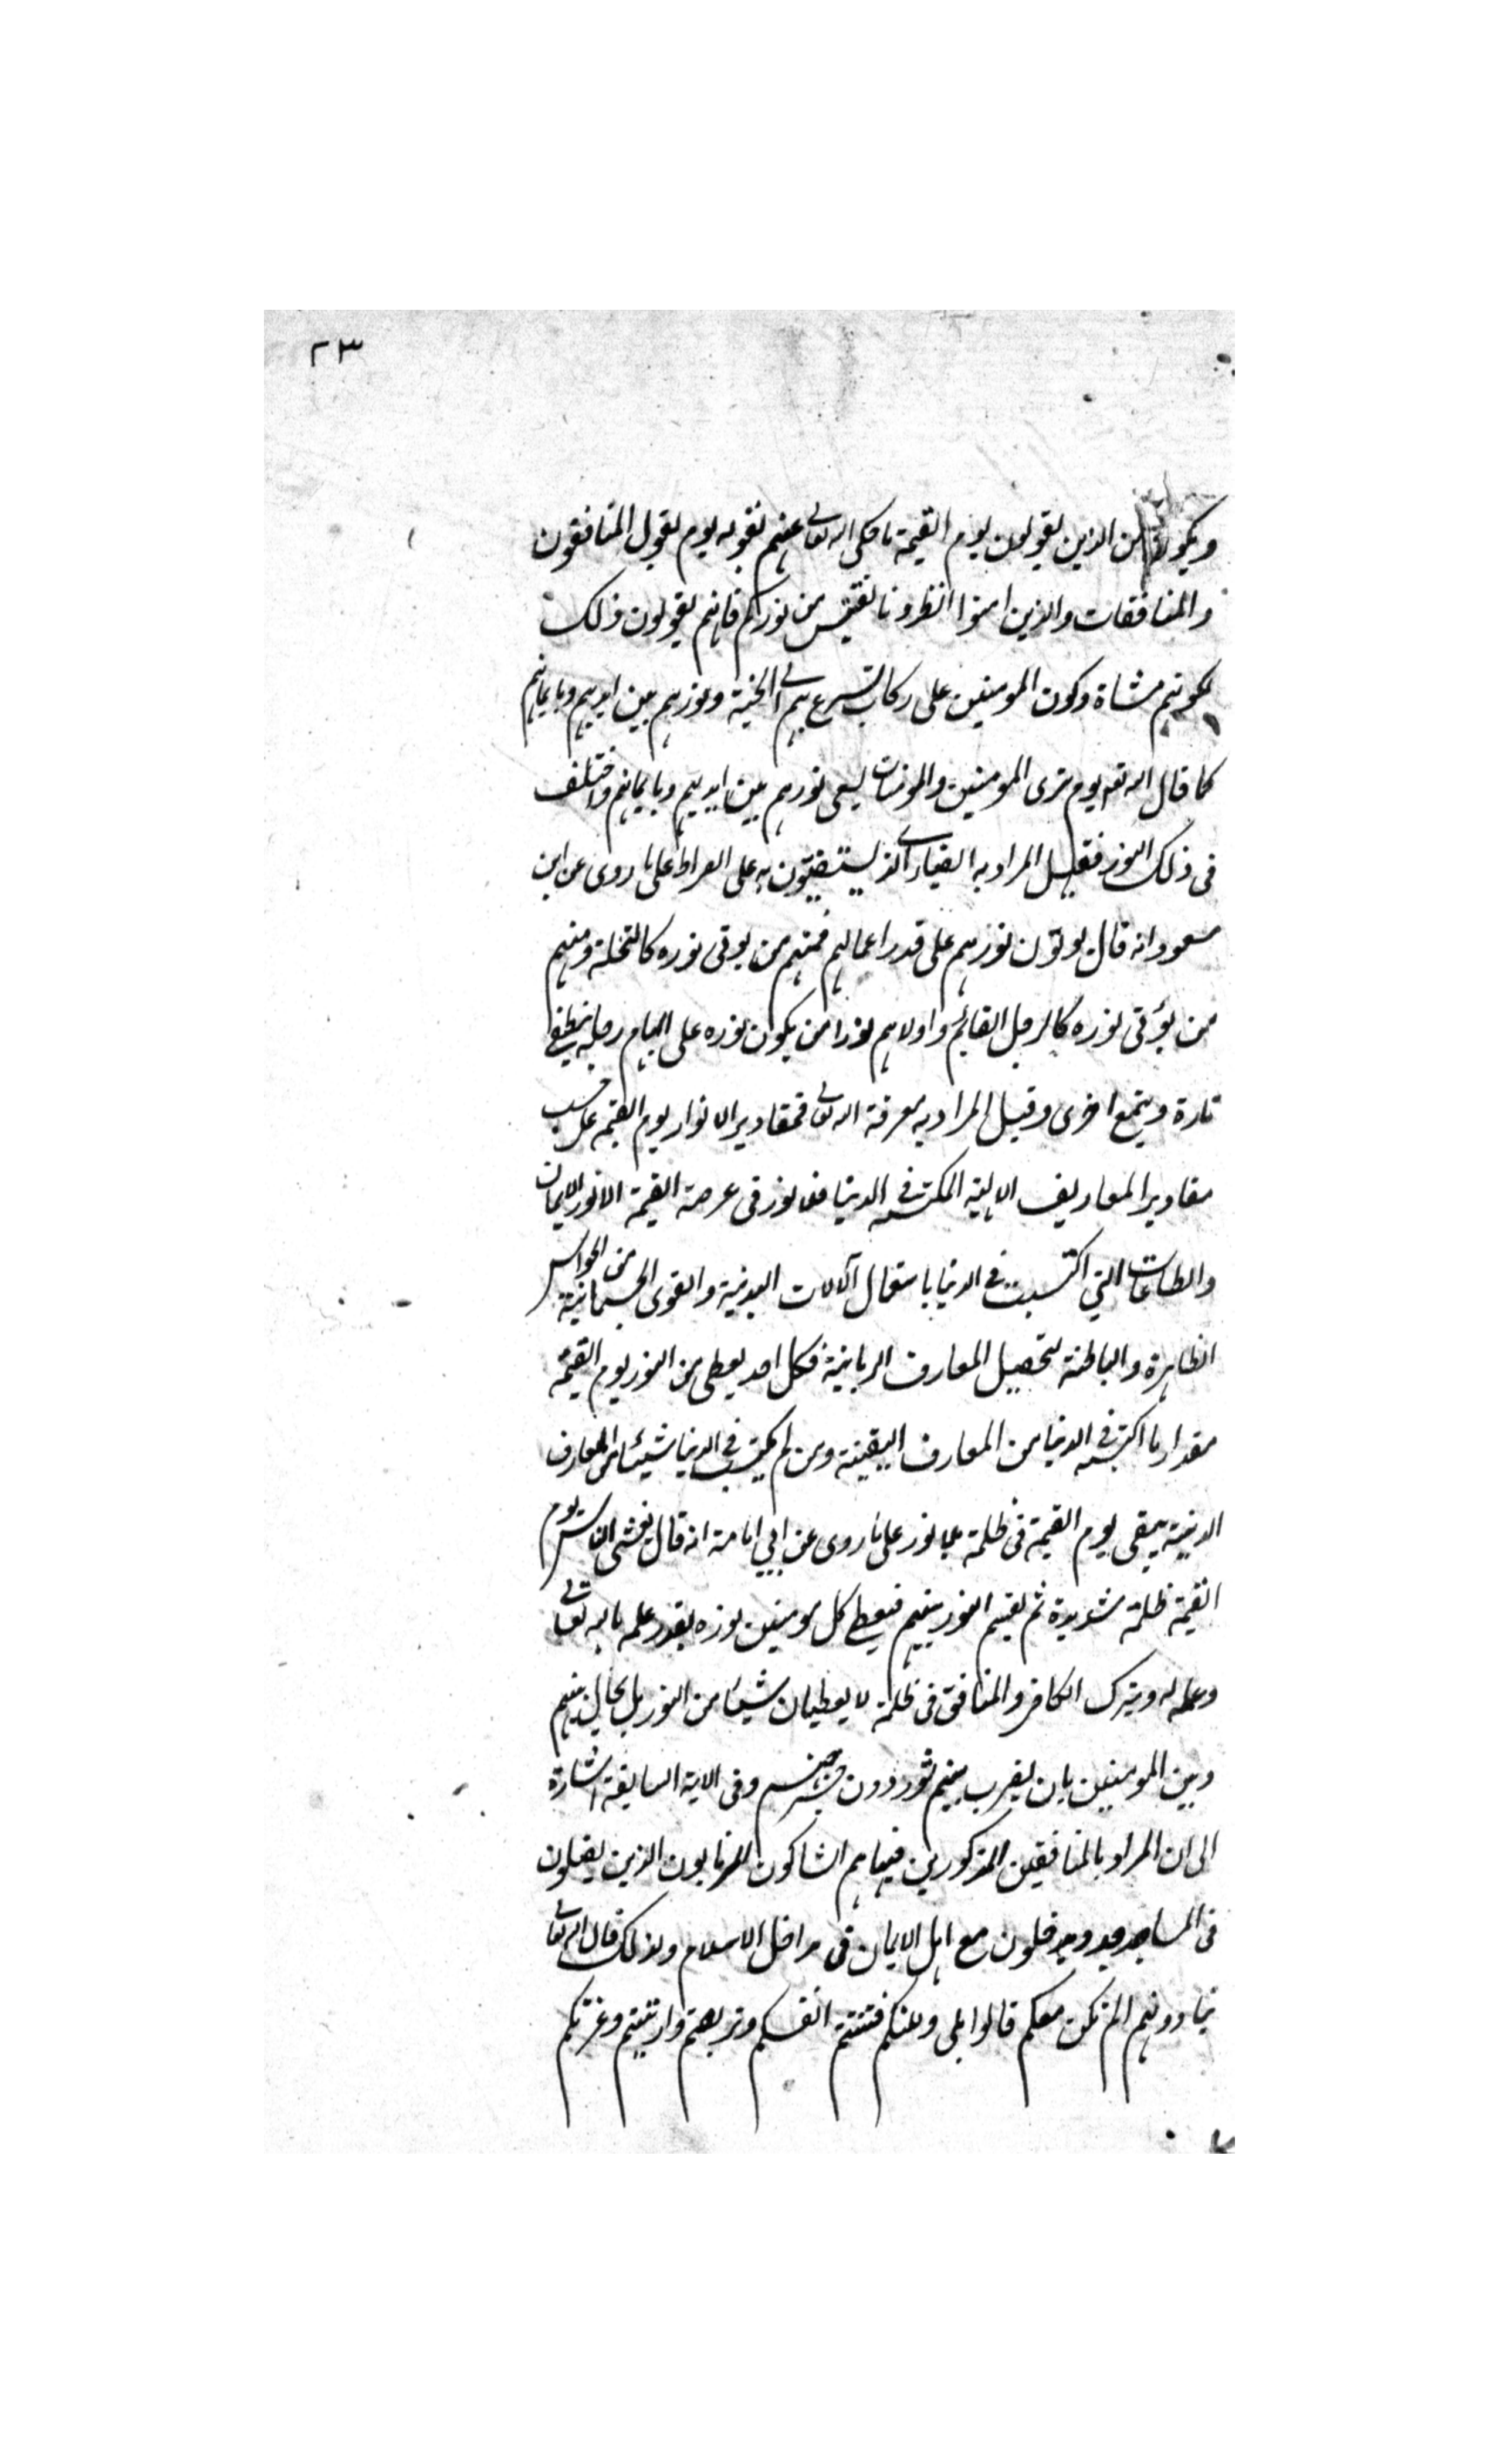 ٢٣
ويكون من الذين يقولون يوم القيمة ما حكى الله تعالى عنهم بقوله يوم يقول المنافقون
والمنافقات والذين امنوا انظرونا نقتبس من نوركم فانهم يقولون ذلك
لكونهم مشاة وكون المومنين على ركاب تسرع بهم الى الجنة ونورهم بين ايديهم وبايمانهم
كما قال الله تعه يوم ترى المومنين والمومنات يسعى نورهم بين ايديهم وبايمانهم واختلف
فى ذلك النور فقيل المراد به الضياء الذى يستضيئون به على الصراط على ما روى عن ابن
مسعود انه قال يوتون نورهم على قدر اعمالهم فمنهم من يوتى نوره كالنخلة ومنهم
من يؤتى نوره كالرجل القائم واولاهم نورا من يكون نوره على ابهام رجله ينطفئ
تارة ويتمع اخرى وقيل المراد به معرفة الله تعالى فمقادير الانوار يوم القيمة على حسب
مقادير المعاريف الالهية المكتسبة فى الدنيا فما نور فى عرصة القيمة الا نور الايمان
والطاعات التي اكتسبت فى الدنيا باستعمال آلالات البدنية والقوى الجسمانية من الحواس
الظاهرة والباطنة لتحصيل المعارف الربانية فكل احد يعطى من النور يوم القيمة
مقدار ما اكتسبه فى الدنيا من المعارف اليقينة ومن لم يكتسب فى الدنيا شيئا من المعارف
الدينية يبقى يوم القيمة فى ظلمة بلا نور على ما روى عن ابي امامة انه قال يغشى الناس يوم
القيمة ظلمة شديدة ثم يقسم النور بينهم فيعطى كل مومنين نوره بقدر علمه بالله تعالى
وعمله له ويترك الكافر والمنافق فى ظلمة لا يعطيان شيئا من النور بل يحال بينهم
وبين المومنين بان يضرب بينهم سور دون وفى الاية السابقة اشارة
الى ان المراد بالمنافقين المذكورين فيها هم الشاكون المرتابون الذين يصلون
فى المساجد ويدخلون مع اهل الايمان فى مداخل الاسلام ولذلك قال الله تعالى
ينادونهم الم نكن معكم قالوا بلى ولكنكم فتنتم انفسكم وتربصتم وارتبتم وغرتكم